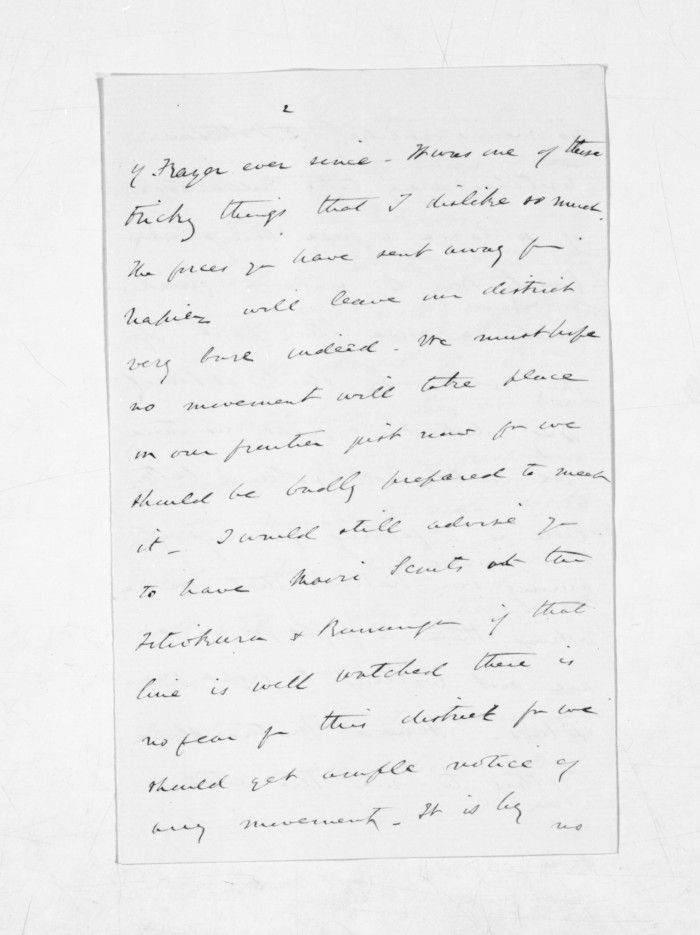 2
of Frazer ever since - It was one of these
tricky things that I dislike so much.
The forces you have sent away from
Napier will leave our district
very bare indeed - We must hope
no movement will take place
on our frontier just now for we
should be badly prepared to meet
it - I would still advise you
to have Maori Scouts at the
Titiokura & Runanga if that
line is well watched there is
no fear for this district for we
should get ample notice of
any movement - It is by
no